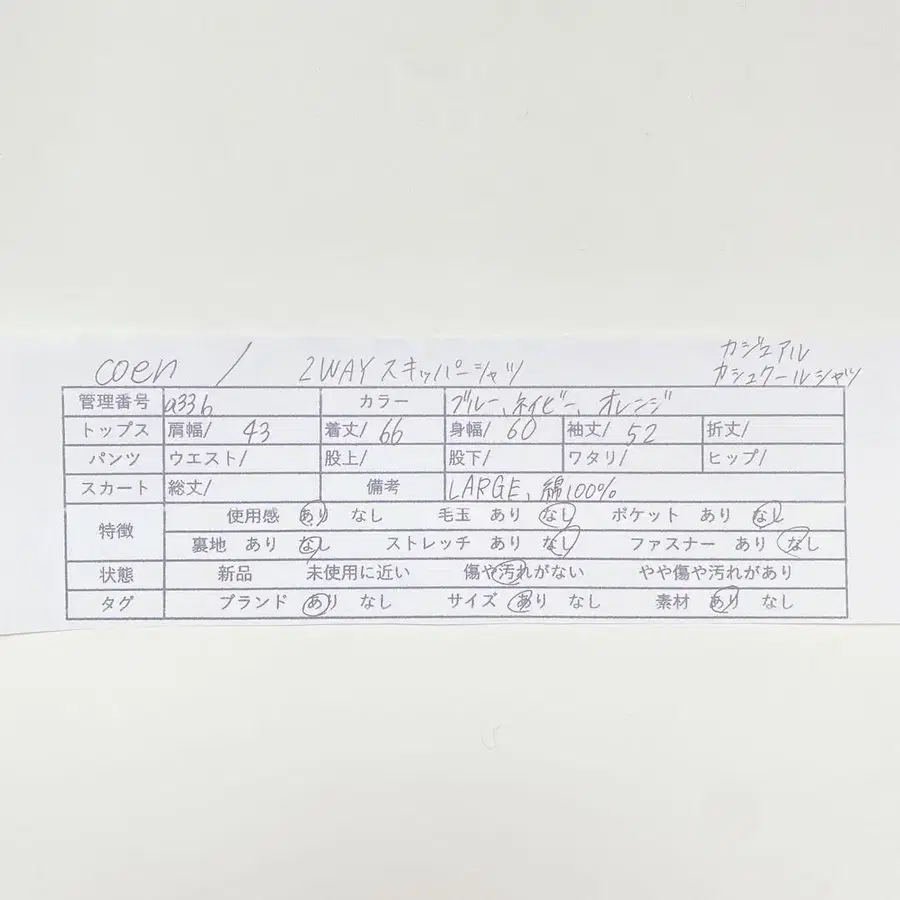 coen / 2WAY スキッパーシャツ カジュアル
カシュクールシャツ
管理番号 a336 カラー ブルー、ネイビー、オレンジ
トップス 肩幅/ 43 着丈/ 66 身幅/ 60 袖丈/ 52 折丈/
パンツ ウエスト/ 股上/ 股下/ ワタリ/ ヒップ/
スカート 総丈/ 備考 LARGE、綿100%
特徴 使用感 あり なし 毛玉 あり なし ポケット あり なし
裏地 あり なし ストレッチ あり なし ファスナー あり なし
状態 新品 未使用に近い 傷や汚れがない やや傷や汚れがあり
タグ ブランド あり なし サイズ あり なし 素材 あり なし